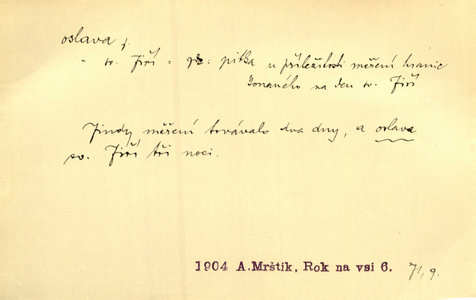 oslava f.
- sv. Jiří - : pitka u příležitosti měření hranic
konaného na den sv. Jiří
Jindy měření trvávalo dva dny, a oslava
sv. Jiří tři noci.
1904 A.Mrštík, Rok na vsi 6. 71,9.